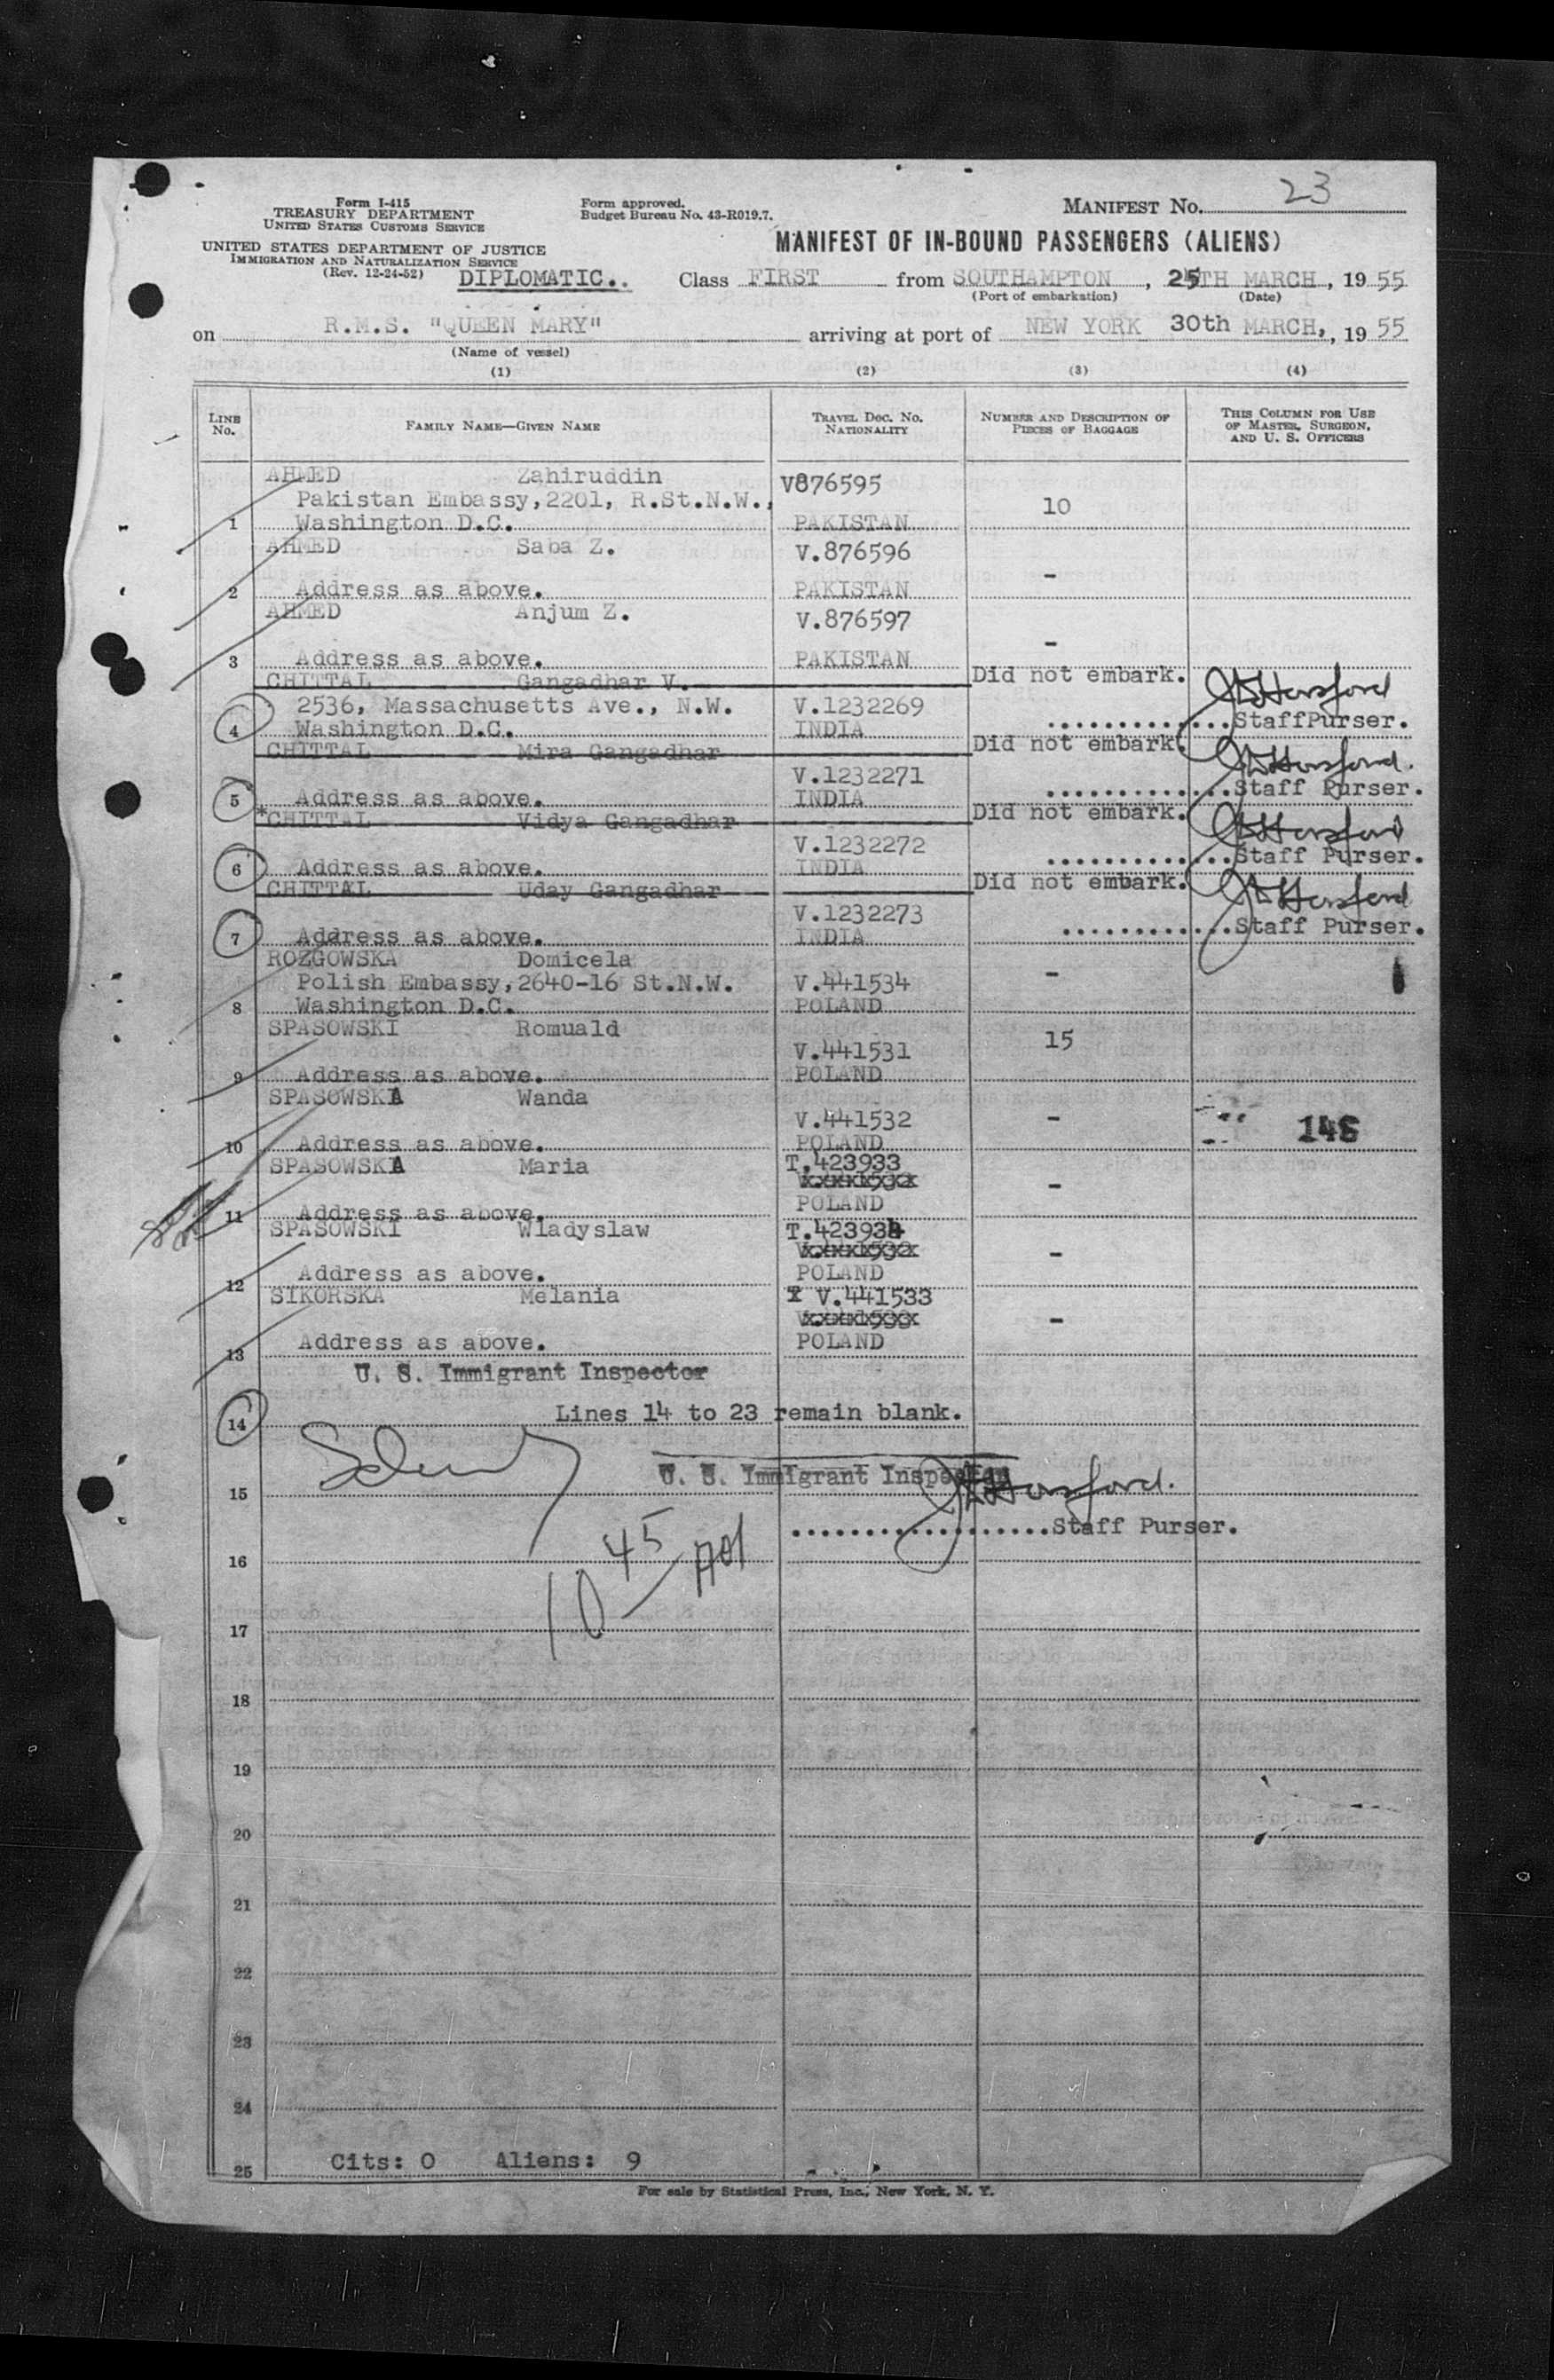 Form I-415
TREASURY DEPARTMENT
UNITED STATES CUSTOMS SERVICE
Form approved.
Budget Bureau No. 43-R019.7.
MANIFEST No. 23
UNITED STATES DEPARTMENT OF JUSTICE
IMMIGRATION AND NATURALIZATION SERVICE
(Rev. 12-24-52)
MANIFEST OF IN-BOUND PASSENGERS (ALIENS)
DIPLOMATIC.. Class FIRST from SOUTHAMPTON, 25TH MARCH, 1955
(Port of embarkation) (Date)
on R.M.S. "QUEEN MARY" arriving at port of NEW YORK 30th MARCH, 1955
(Name of vessel)
(1) (2) (3) (4)
LINE No. FAMILY NAME—GIVEN NAME TRAVEL DOC. NO. NATIONALITY NUMBER AND DESCRIPTION OF PIECES OF BAGGAGE THIS COLUMN FOR USE OF MASTER, SURGEON, AND U. S. OFFICERS
AHMED Zahiruddin V876595
Pakistan Embassy,2201, R.St.N.W., 10
1 Washington D.C. PAKISTAN
AHMED Saba Z. V.876596
-
2 Address as above. PAKISTAN
AHMED Anjum Z. V.876597
-
3 Address as above. PAKISTAN
CHITTAL Gangadhar V. Did not embark.
2536, Massachusetts Ave., N.W. V.1232269 StaffPurser.
4 Washington D.C. INDIA
CHITTAL Mira Gangadhar Did not embark.
V.1232271
5 Address as above. INDIA Staff Purser.
*CHITTAL Vidya Gangadhar Did not embark.
V.1232272
6 Address as above. INDIA Staff Purser.
CHITTAL Uday Gangadhar Did not embark.
V.1232273
7 Address as above. INDIA Staff Purser.
ROZGOWSKA Domicela -
Polish Embassy,2640-16 St.N.W. V.441534
8 Washington D.C. POLAND
SPASOWSKI Romuald 15
V.441531
9 Address as above. POLAND
SPASOWSKA Wanda
V.441532 -
10 Address as above. POLAND 146
SPASOWSKA Maria T.423933
-
11 Address as above. POLAND
SPASOWSKI Wladyslaw T.423934
-
12 Address as above. POLAND
SIKORSKA Melania V.441533
-
13 Address as above. POLAND
U. S. Immigrant Inspector
14 Lines 14 to 23 remain blank.
U. S. Immigrant Inspector
15
Staff Purser.
16
10 45
17
18
19
20
21
22
23
24
25 Cits: 0 Aliens: 9
For sale by Statistical Press, Inc., New York, N. Y.